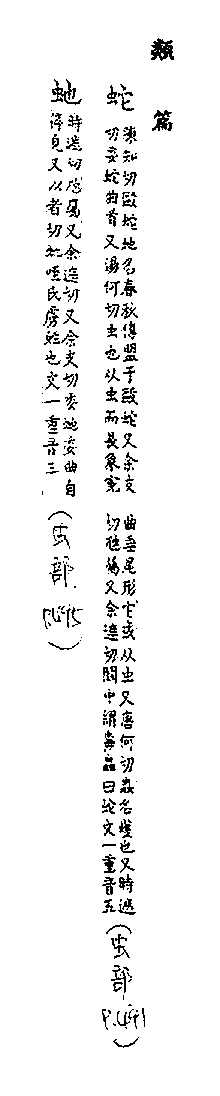 類篇
蛇
知切敺蛇地名春秋傳盟于敺蛇又余支
切委蛇曲皃又湯何切虫也从虫而長象冤
曲垂尾形它或从虫又唐何切蟲名螣也又時遮
切虺屬又余遮切閩中謂毒蟲曰蛇文一重音五
(虫部 P.491)
虵
時遮切虺屬又余遮切又余支切委虵委曲自
得皃又以者切氏虜姓也文一重音三
(虫部 P.495)